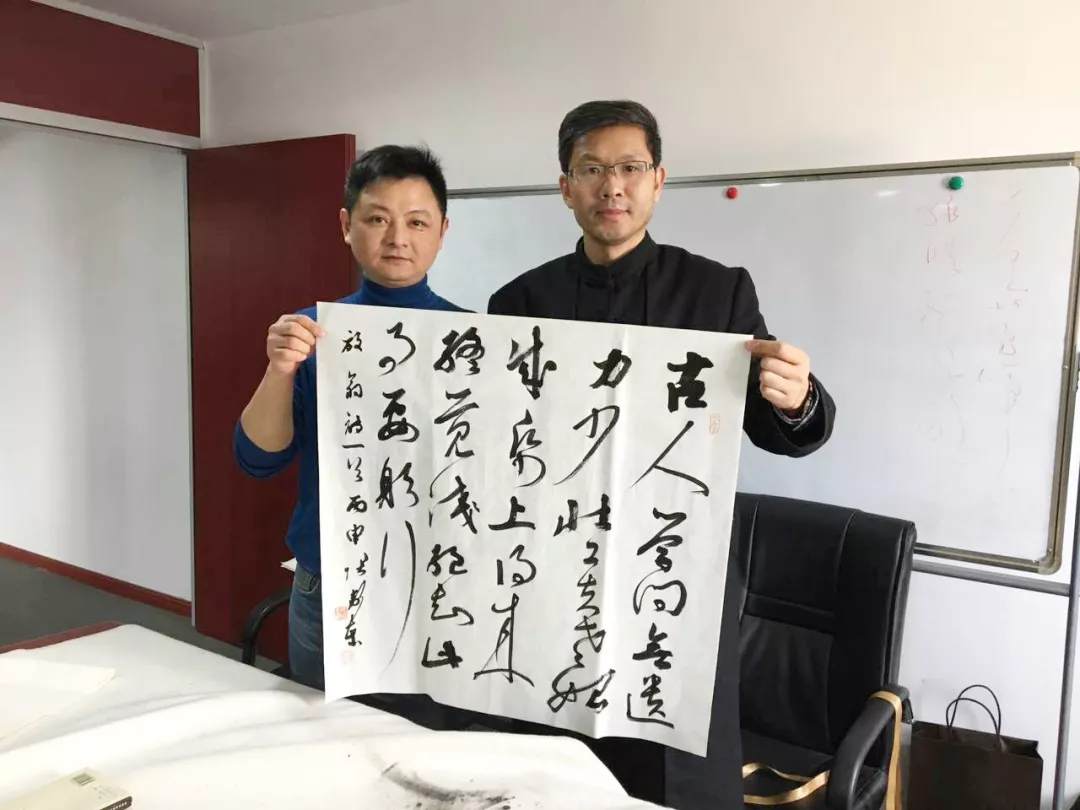 古人学问无遗
力少壮工夫老始
成纸上得来
终觉浅绝知此
事要躬行
放翁诗一首丙申